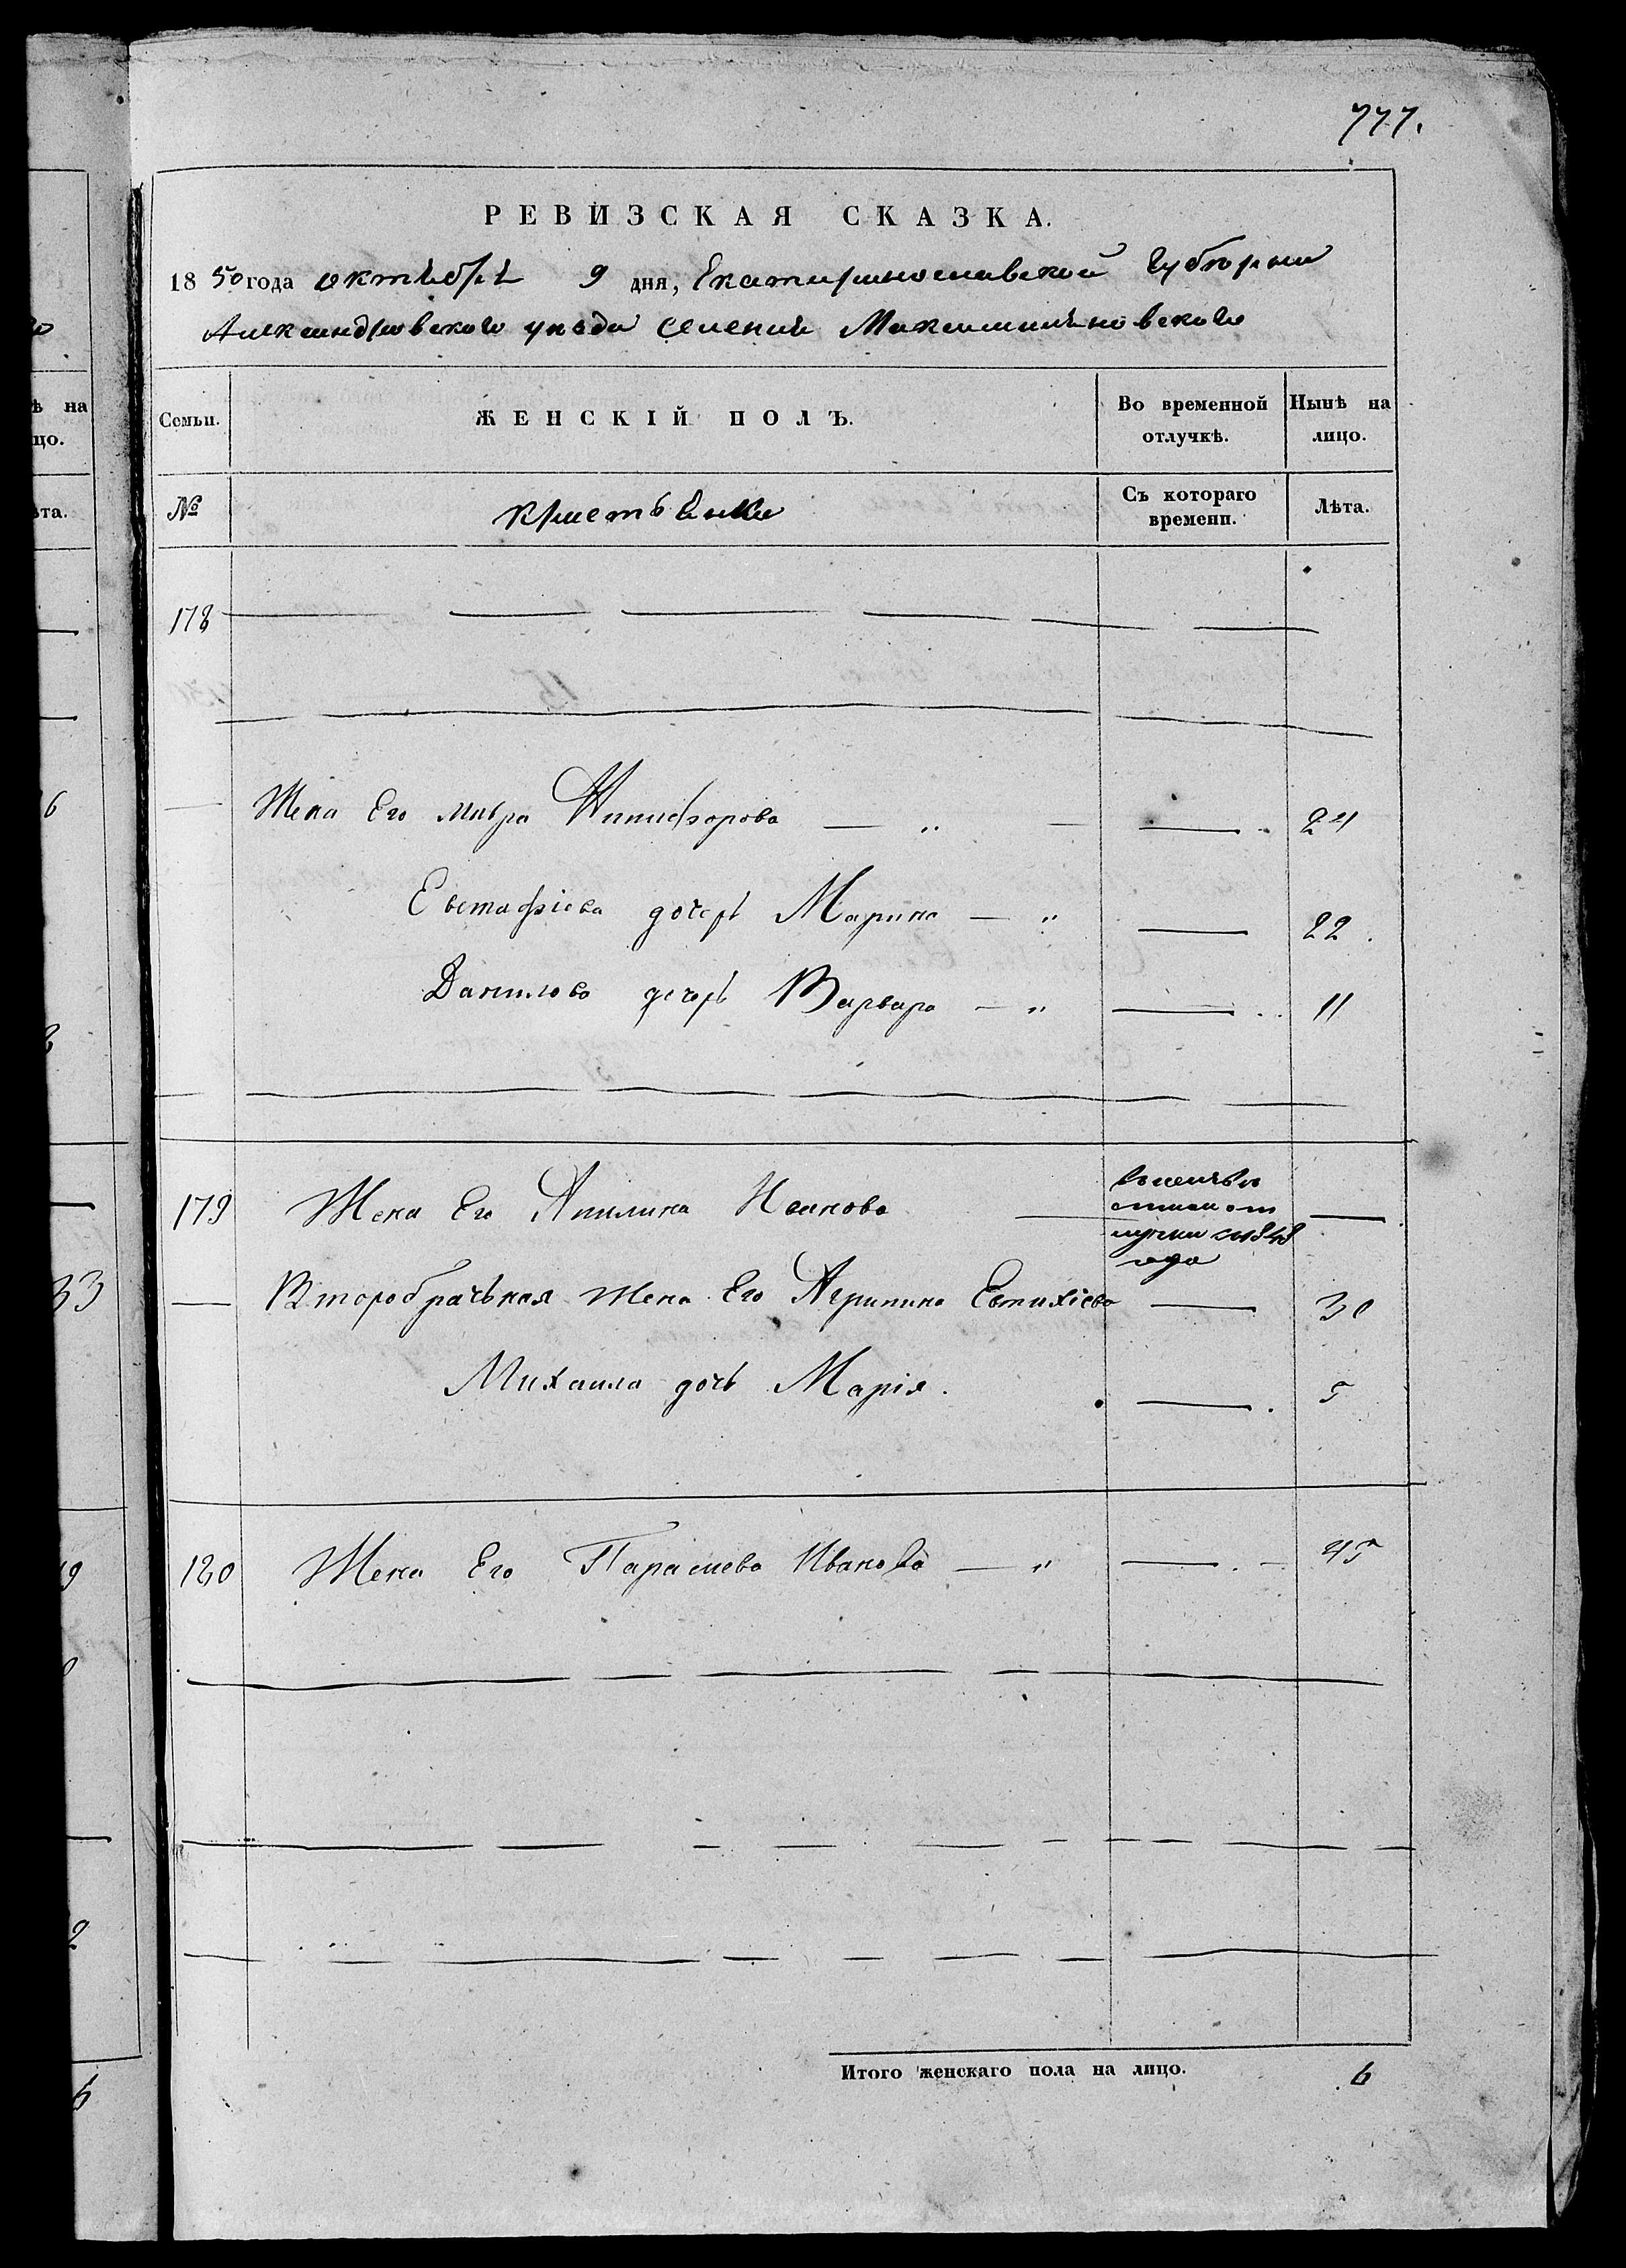 777.
РЕВИЗСКАЯ СКАЗКА.
1850 года октября 9 дня, Екатеринославской Губернии
Александровского уезда селения Максимильяновского
Семьи. ЖЕНСКІЙ ПОЛЪ. Во временной отлучкѣ. Нынѣ на лицо.
№ крестьянки Съ котораго времени. Лѣта.
178
Жена Его Мавра Никифорова — „ — 24
Евстафіева дочерь Марина — „ — 22
Данилова дочерь Варвара — „ — 11
179 Жена Его Акилина Иванова —
1848
года
— Второбрачьная Жена Его Агрипина Евтихіева — 30
Михаила дочь Марія. — 5
180 Жена Его Параскева Иванова — „ — 45
Итого женскаго пола на лицо. 6
ѣ на
цо.
ѣта.
6
33
9
2
6